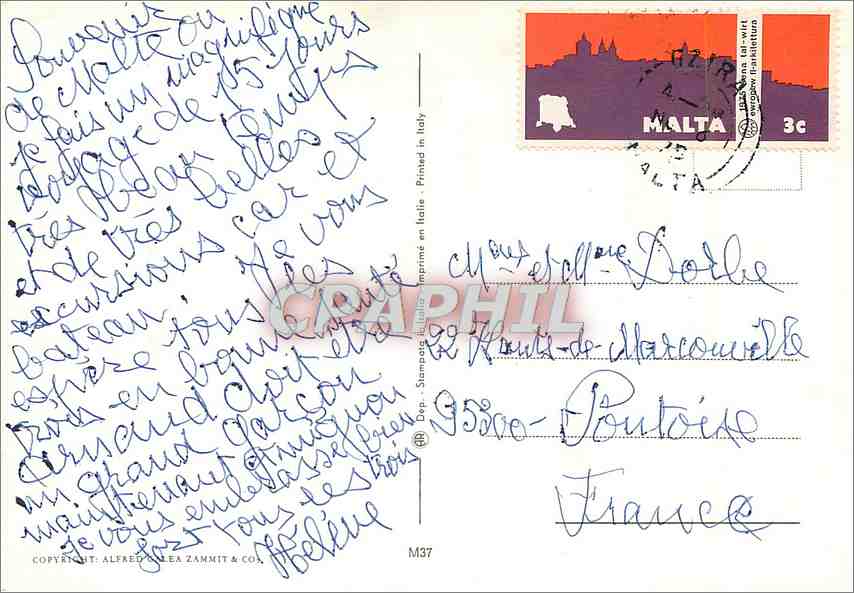 Souvenir
de Malte ou
je fais un magnifique
voyage de 15 jours
très beau temps
et de très belles
excursions car et
bateau. Je vous
espère tous les
trois en bonne santé
Arnaud doit être
un grand garçon
maintenant et mignon
Je vous embrasse bien
fort tous les trois
Hélène
COPYRIGHT: ALFRED GALEA ZAMMIT & CO.
M37
Dép. - Stampato in Italia - Imprimé en Italie - Printed in Italy
MALTA 3c
1975 Sena tal-wirt
ewropew fl-arkitettura
GZIRA
MALTA
Mme et Mr Dorbe
22 Hauts-de-Marcouville
95300 - Pontoise
France
CPAPHIL